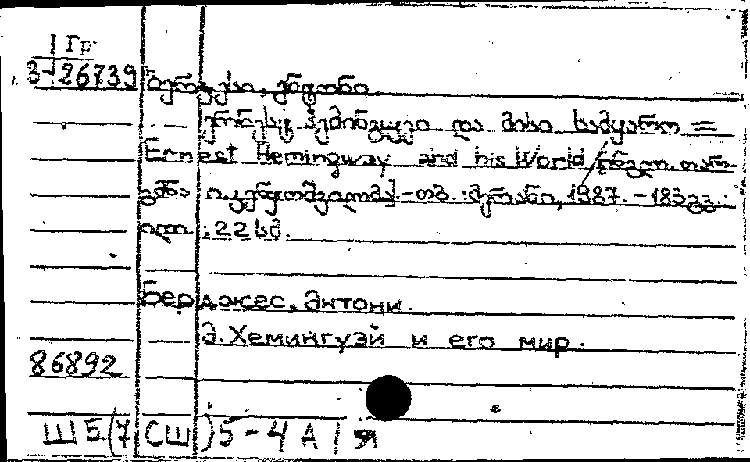 1 Гр
3-26739
ბერჯესი, ენტონი.
ერნესტ ჰემინგუეი და მისი სამყარო =
Ernest Hemingway and his World / ინგლ. თარ-
გმნა
-თბ. : მერანი, 1987. - 183 გვ. :
ილ. ; 22 სმ.
Берджес, Энтони.
Э. Хемингуэй и его мир.
86892
Ш5(7СШ)5-4 А